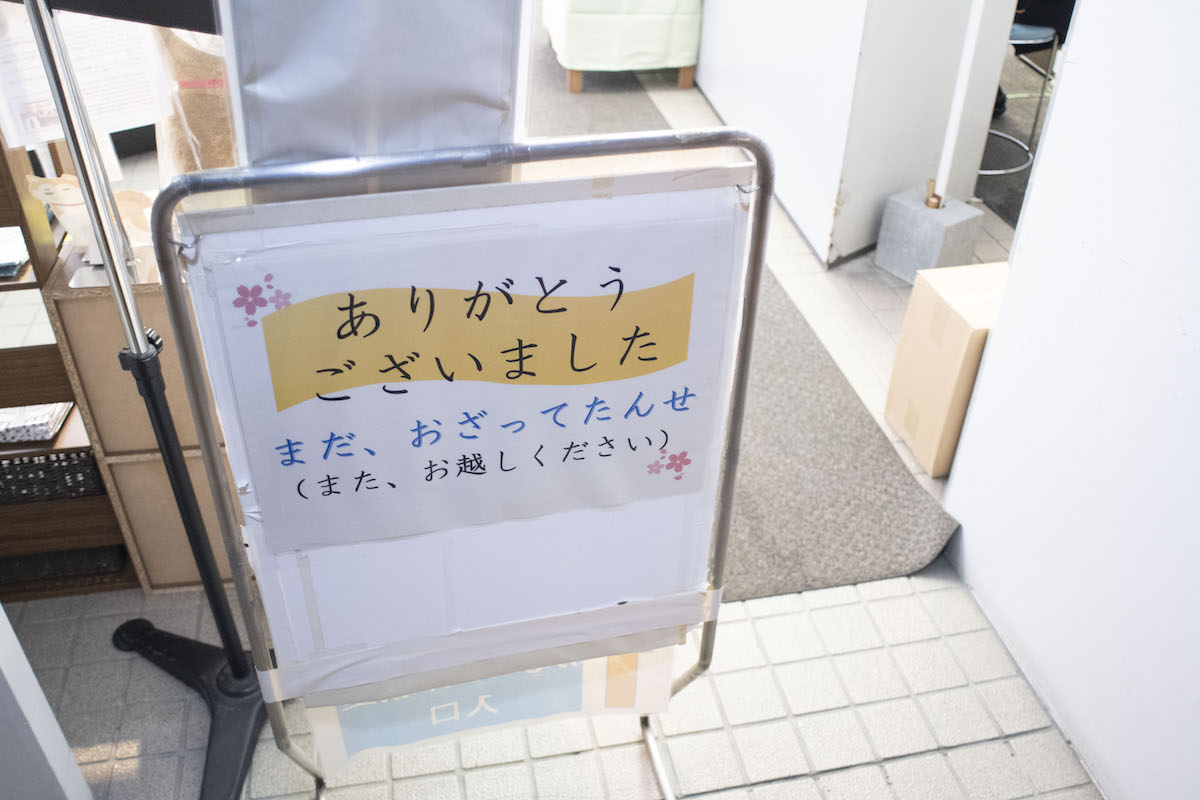 ありがとう
ございました
まだ、おざってたんせ
(また、お越しください)
入口